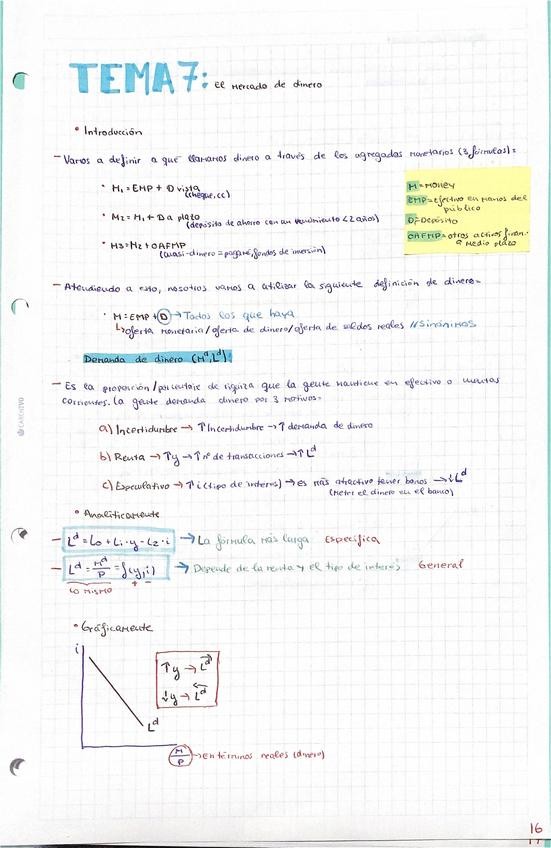 TEMA 7: El mercado de dinero
• Introducción
- Vamos a definir a que llamamos dinero a través de los agregados monetarios (3 fórmulas):
• M₁ = EMP + D vista
(cheque, cc)
• M₂ = M₁ + D a plazo
(depósito de ahorro con un vencimiento < 2 años)
• M3 = M₂ + OAFMP
(cuasi-dinero = pagaré, fondos de inversión)
M = Money
EMP = Efectivo en manos del
público
D = Depósito
OAFMP = otros activos finan.
a medio plazo
- Atendiendo a esto, nosotros vamos a utilizar la siguiente definición de dinero:
• M = EMP + D → Todos los que haya
↳ oferta monetaria / oferta de dinero / oferta de saldos reales // Sinónimos
Demanda de dinero (Mᵈ, Lᵈ)
- Es la proporción / porcentaje de riqueza que la gente mantiene en efectivo o cuentas
corrientes. La gente demanda dinero por 3 motivos:
a) Incertidumbre → ↑ Incertidumbre → ↑ demanda de dinero
b) Renta → ↑y → ↑ nº de transacciones → ↑ Lᵈ
c) Especulativo → ↑ i (tipo de interés) → es más atractivo tener bonos → ↓ Lᵈ
(meter el dinero en el banco)
• Analíticamente
- Lᵈ = L₀ + L₁·y - L₂·i → La fórmula más larga Específica
- Lᵈ = Mᵈ/P = f(y, i) → Depende de la renta y el tipo de interés General
Lo mismo + -
• Gráficamente
i
↑y → Lᵈ →
↓y → Lᵈ ←
Lᵈ
M/P → En términos reales (dinero)
16
17
CARCHIVO